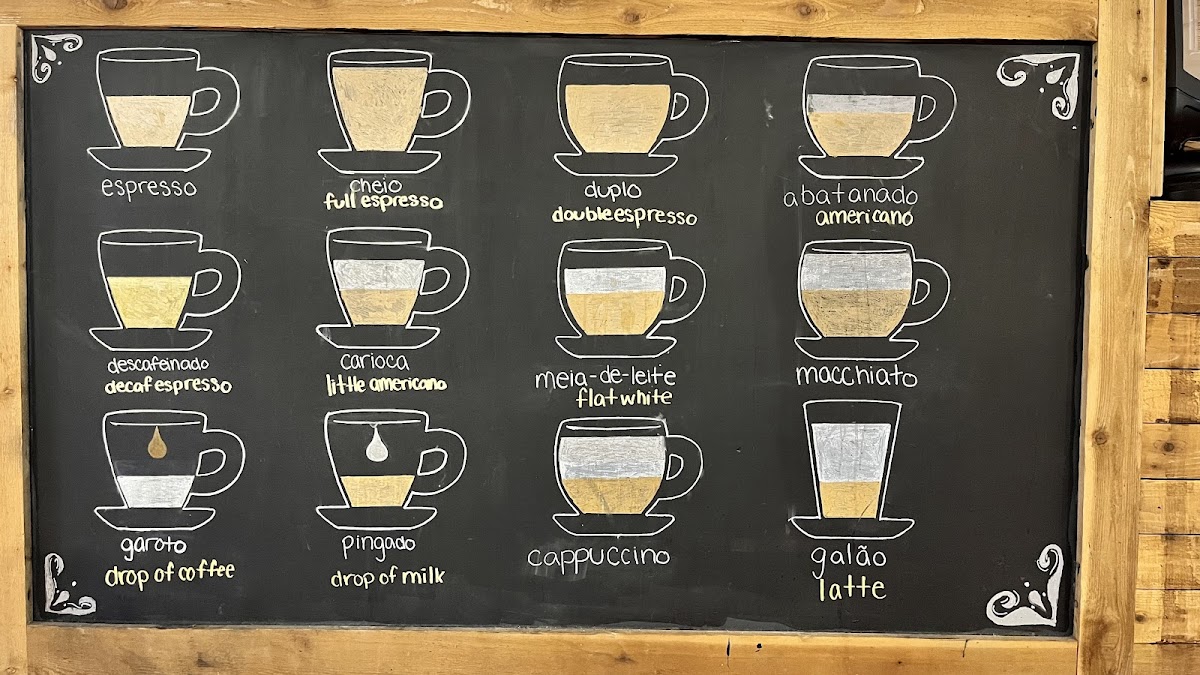 espresso
cheio
full espresso
duplo
double espresso
abatanado
americano
descafeinado
decaf espresso
carioca
little americano
meia-de-leite
flat white
macchiato
garoto
drop of coffee
pingado
drop of milk
cappuccino
galão
latte